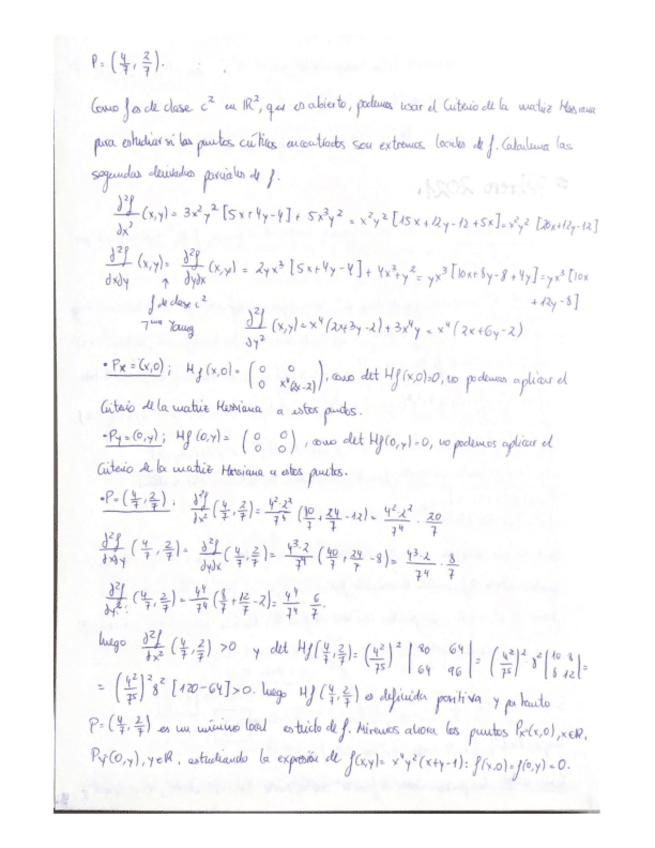 P = (4/7, 2/7).
Como f es de clase C² en ℝ², que es abierto, podemos usar el Criterio de la matriz Hessiana
para estudiar si los puntos críticos encontrados son extremos locales de f. Calculemos las
segundas derivadas parciales de f.
∂²f/∂x² (x,y) = 3x²y² [5x+4y-4] + 5x³y² = x²y² [15x+12y-12+5x] = x²y² [20x+12y-12]
∂²f/∂x∂y (x,y) = ∂²f/∂y∂x (x,y) = 2yx³ [5x+4y-4] + 4x³y² = yx³ [10x+8y-8+4y] = yx³ [10x
+12y-8]
↑
f de clase C²
Tma Young
∂²f/∂y² (x,y) = x⁴(2x+3y-2) + 3x⁴y = x⁴(2x+6y-2)
• Px = (x,0); Hf(x,0) = (0 0 / 0 x⁴(2x-2)), como det Hf(x,0)=0, no podemos aplicar el
Criterio de la matriz Hessiana a estos puntos.
• Py = (0,y); Hf(0,y) = (0 0 / 0 0), como det Hf(0,y)=0, no podemos aplicar el
Criterio de la matriz Hessiana a estos puntos.
• P = (4/7, 2/7); ∂²f/∂x² (4/7, 2/7) = 4²·2²/7⁴ (80/7 + 24/7 - 12) = 4²·2²/7⁴ · 20/7
∂²f/∂x∂y (4/7, 2/7) = ∂²f/∂y∂x (4/7, 2/7) = 4³·2/7⁴ (40/7 + 24/7 - 8) = 4³·2/7⁴ · 8/7
∂²f/∂y² (4/7, 2/7) = 4⁴/7⁴ (8/7 + 12/7 - 2) = 4⁴/7⁴ · 6/7
luego ∂²f/∂x² (4/7, 2/7) > 0 y det Hf(4/7, 2/7) = (4²/7⁵)² |80 64 / 64 96| = (4²/7⁵)² · 8² |10 8 / 8 12| =
= (4²/7⁵)² 8² [120-64] > 0. luego Hf(4/7, 2/7) es definida positiva y por tanto
P = (4/7, 2/7) es un mínimo local estricto de f. Miremos ahora los puntos Px(x,0), x∈ℝ,
Py(0,y), y∈ℝ, estudiando la expresión de f(x,y) = x⁴y²(x+y-1): f(x,0) = f(0,y) = 0.